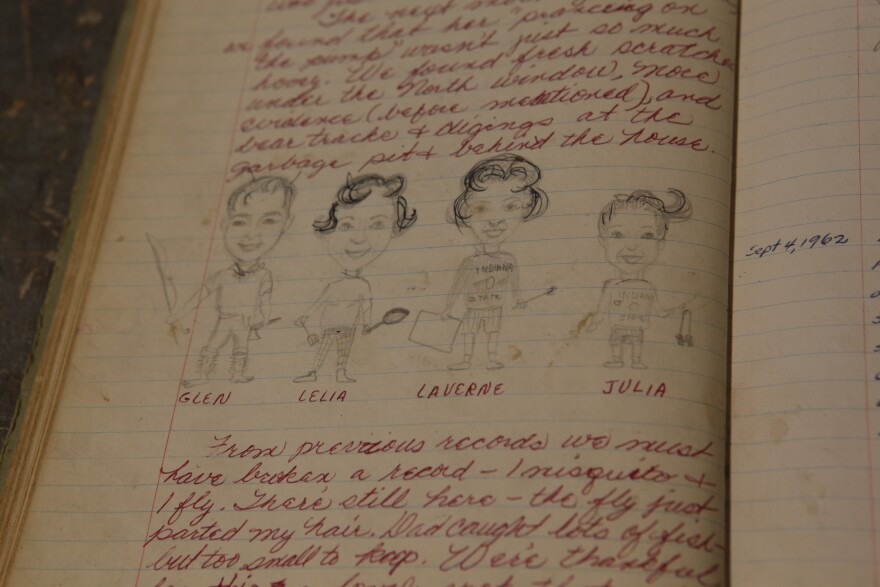 The next
we found that her "prancing on
the pump" wasn't just so much
hooey. We found fresh scratches
under the North window, more
evidence (before mentioned), and
bear tracks & digings at the
garbage pit & behind the house.
INDIANA
STATE
INDIANA
STATE
GLEN LELIA LAVERNE JULIA
From previous records we must
have broken a record - 1 misquito &
1 fly. There's still here - the fly just
parted my hair. Dad caught lots of fish -
but too small to keep. We're thankful
Sept 4, 1962